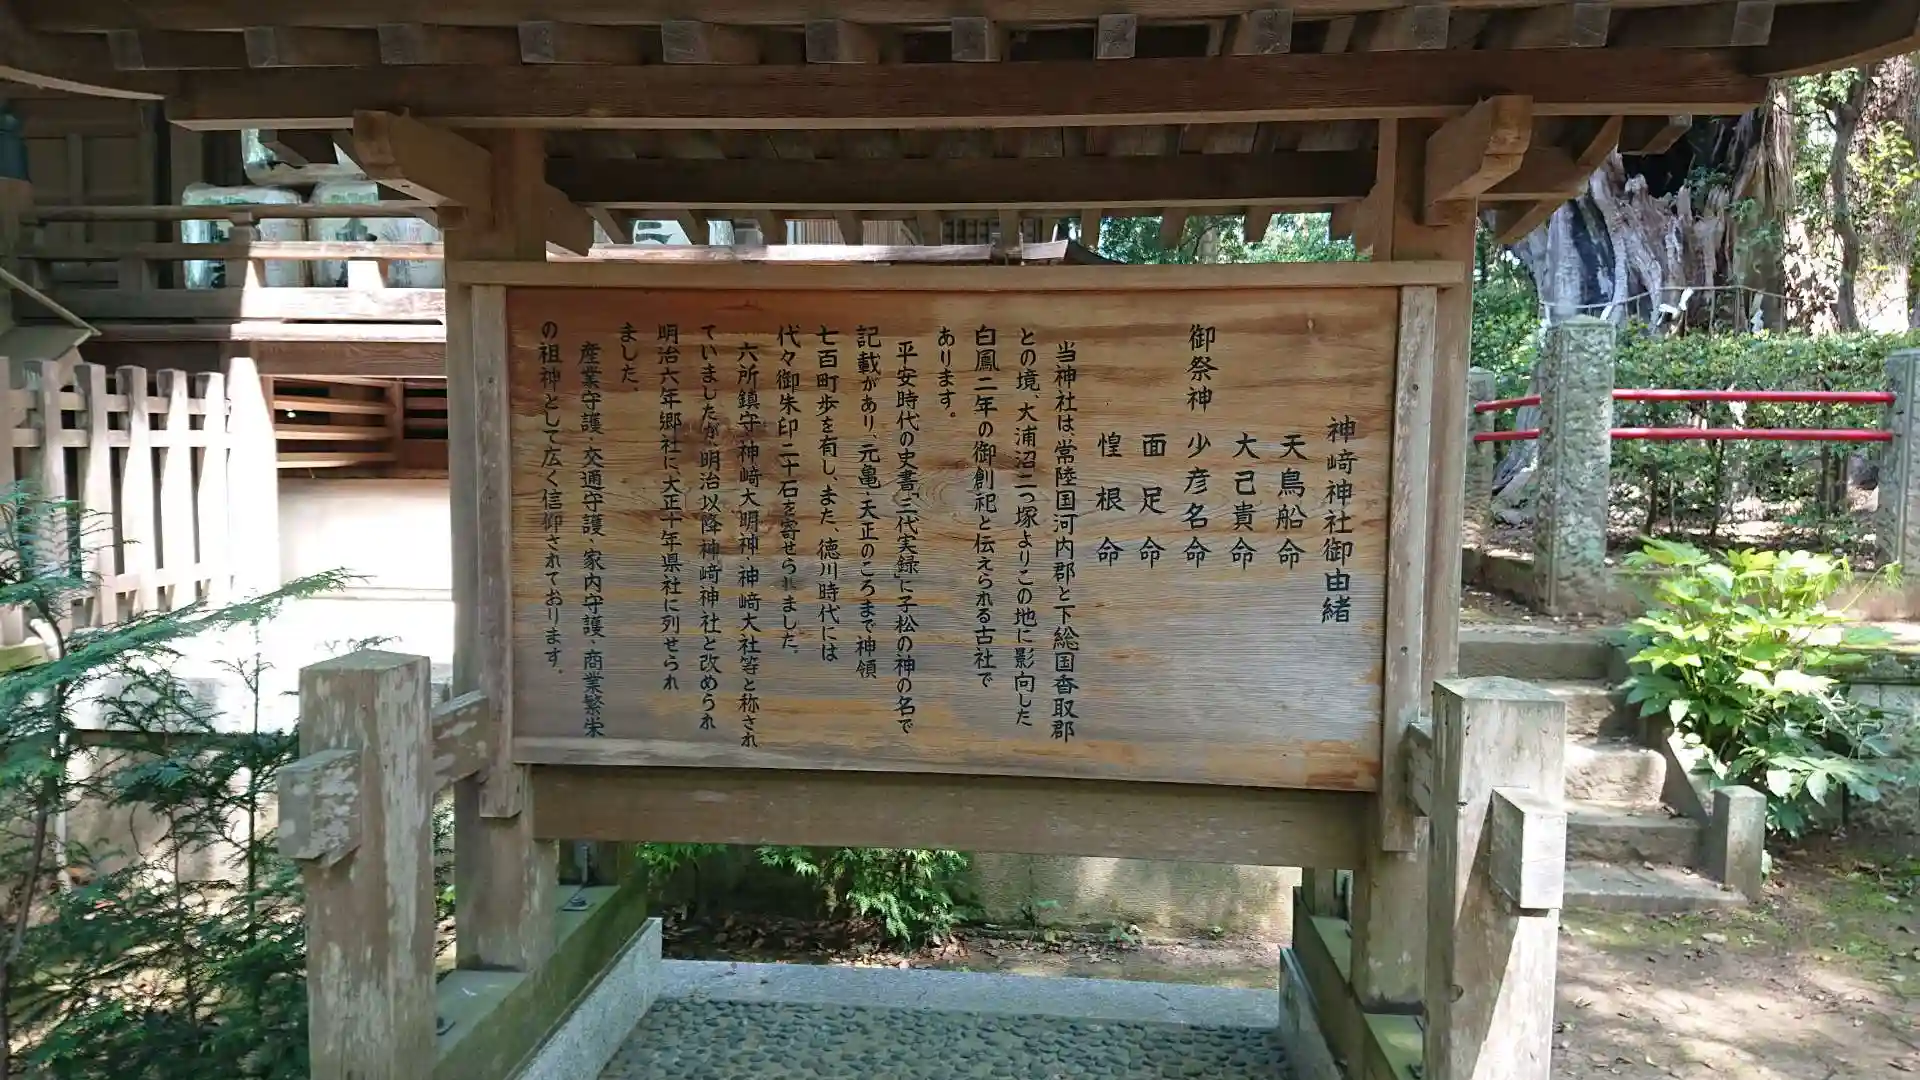 神﨑神社御由緒
天鳥船命
大己貴命
御祭神 少彦名命
面足命
惶根命
当神社は常陸国河内郡と下総国香取郡
との境、大浦沼二つ塚よりこの地に影向した
白鳳二年の御創祀と伝えられる古社で
あります。
平安時代の史書「三代実録」に子松の神の名で
記載があり、元亀・天正のころまで神領
七百町歩を有し、また、徳川時代には
代々御朱印二十石を寄せられました。
六所鎮守神﨑大明神・神﨑大社等と称され
ていましたが明治以降神﨑神社と改められ
明治六年郷社に、大正十年県社に列せられ
ました。
産業守護・交通守護・家内守護・商業繁栄
の祖神として広く信仰されております。